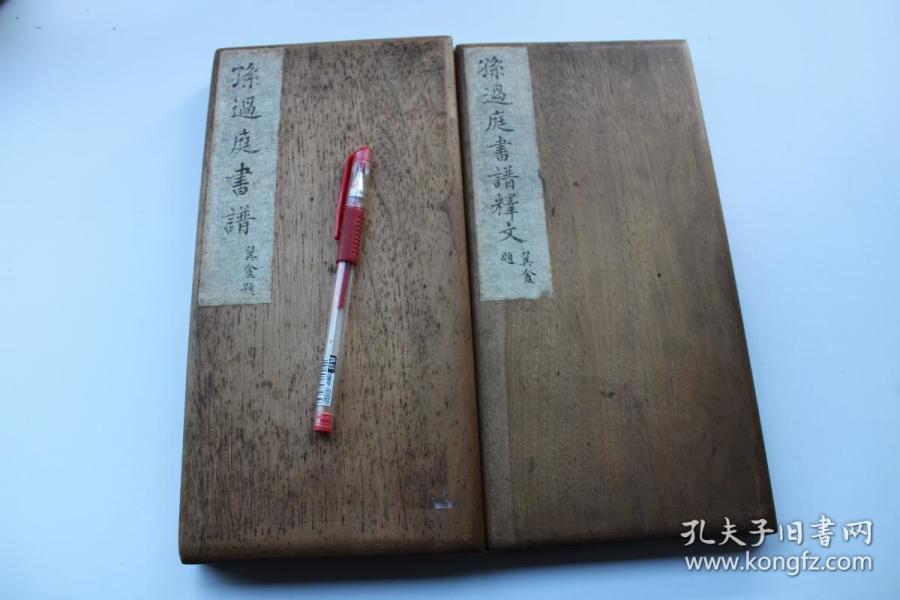 孫過庭書譜
翼盦題
孫過庭書譜釋文
翼盦
題
孔夫子旧书网
www.kongfz.com